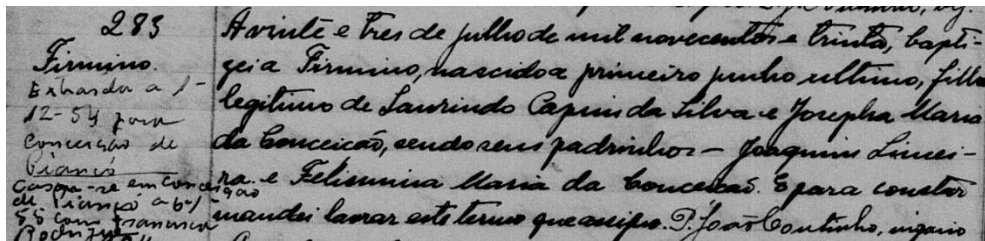 283
Firmino.
Extrahida a 1-
12-54 para
Conceição de
Piancó
Casou-se em Conceição
de Piancó a 6-1-
55 com Francisca
Rodrigues
A vinte e tres de julho de mil novecentos e trinta, bapti-
zei a Firmino, nascido a primeiro junho ultimo, filho
legitimo de Laurindo da Silva e Josepha Maria
da Conceicaõ, sendo seus padrinhos - Joaquim
ra. e Felismina Maria da Conceicaõ. E para constar
mandei lavrar este termo que assigno. P. João Coutinho, vigario